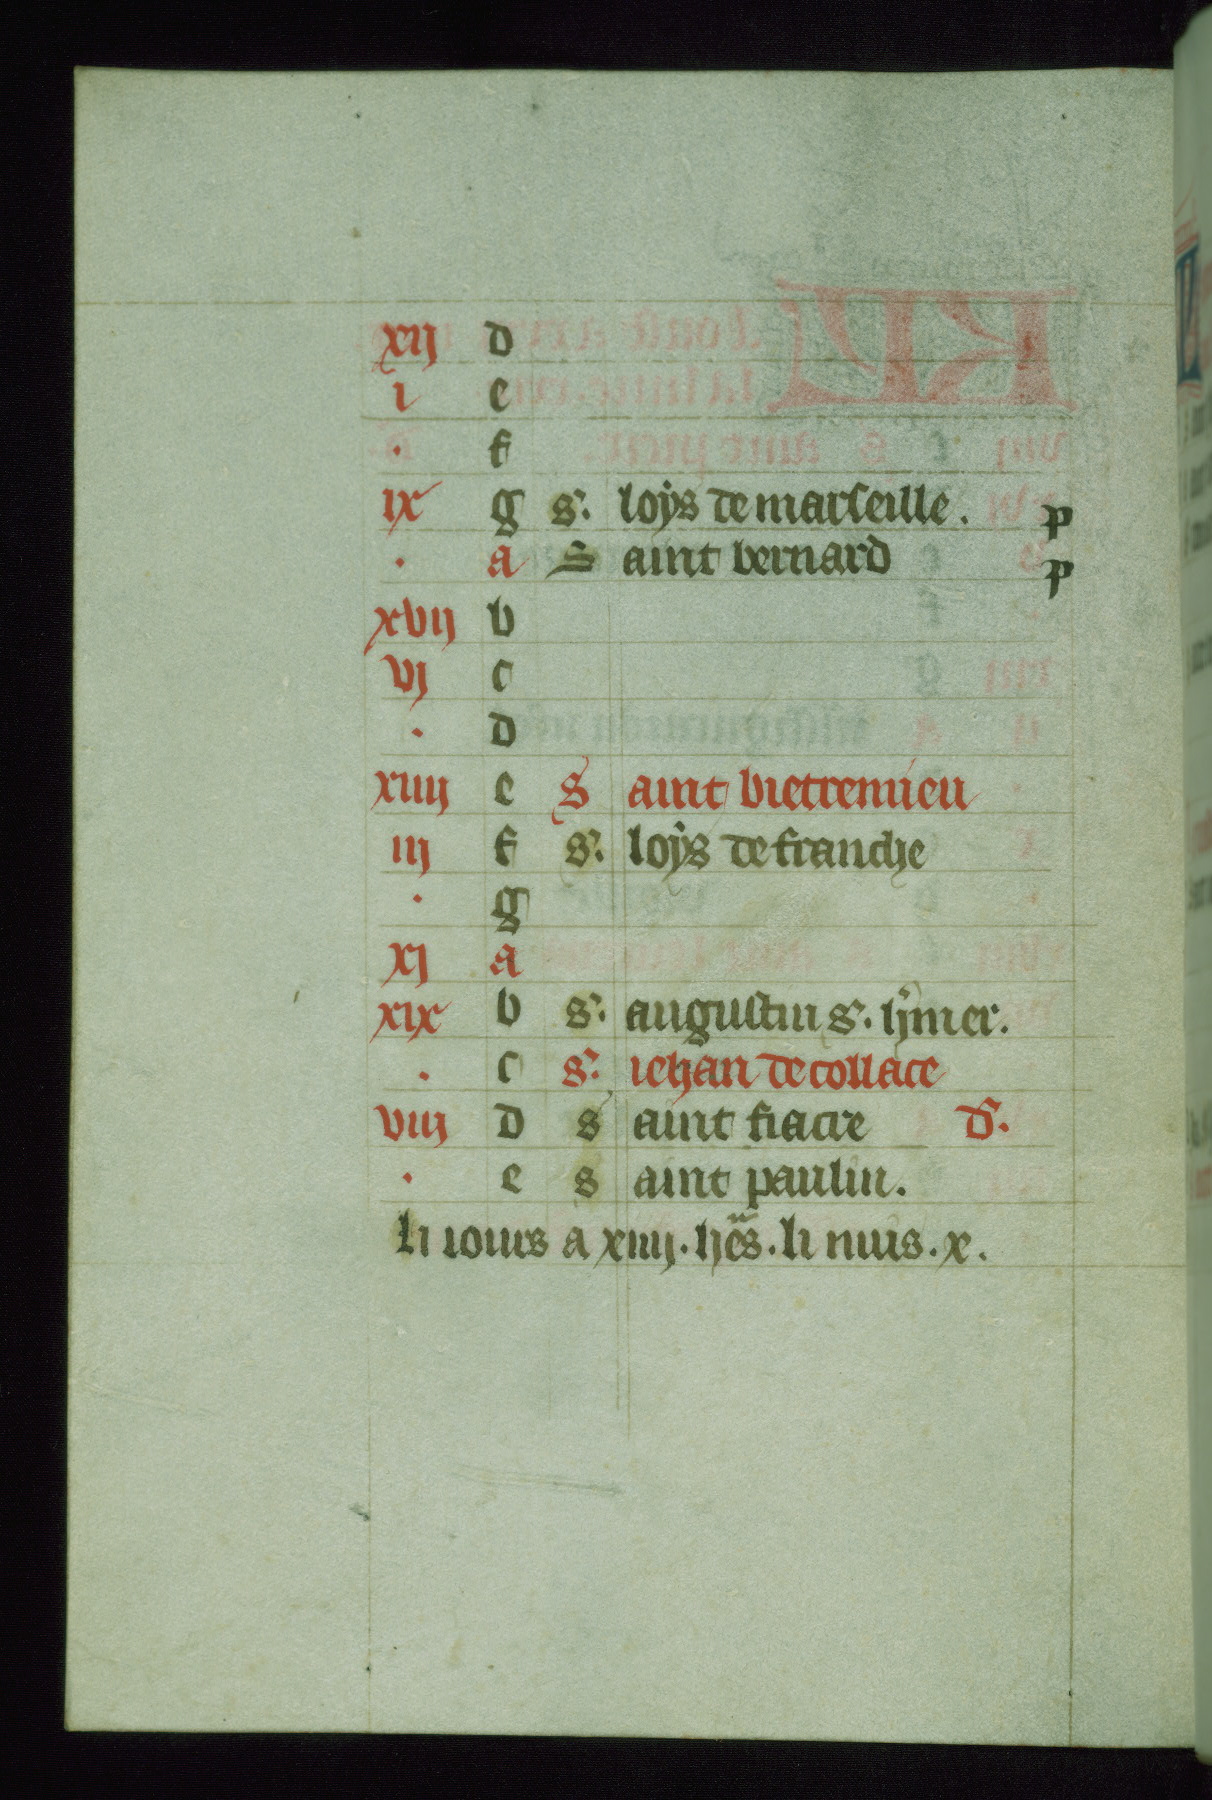 xij d
i e
. f
ix g s. loys de marseille. p
. a S aint bernard p
xvij b
vj c
. d
xiiij e S aint bietremieu
iij f s. loys de franche
. g
xj a
xix b s. augustin s. hymer.
. c s. iehan decollace
viij d s aint fiacre d.
. e s aint paulin.
li iours a xiiij. hẽs. li nuis. x.